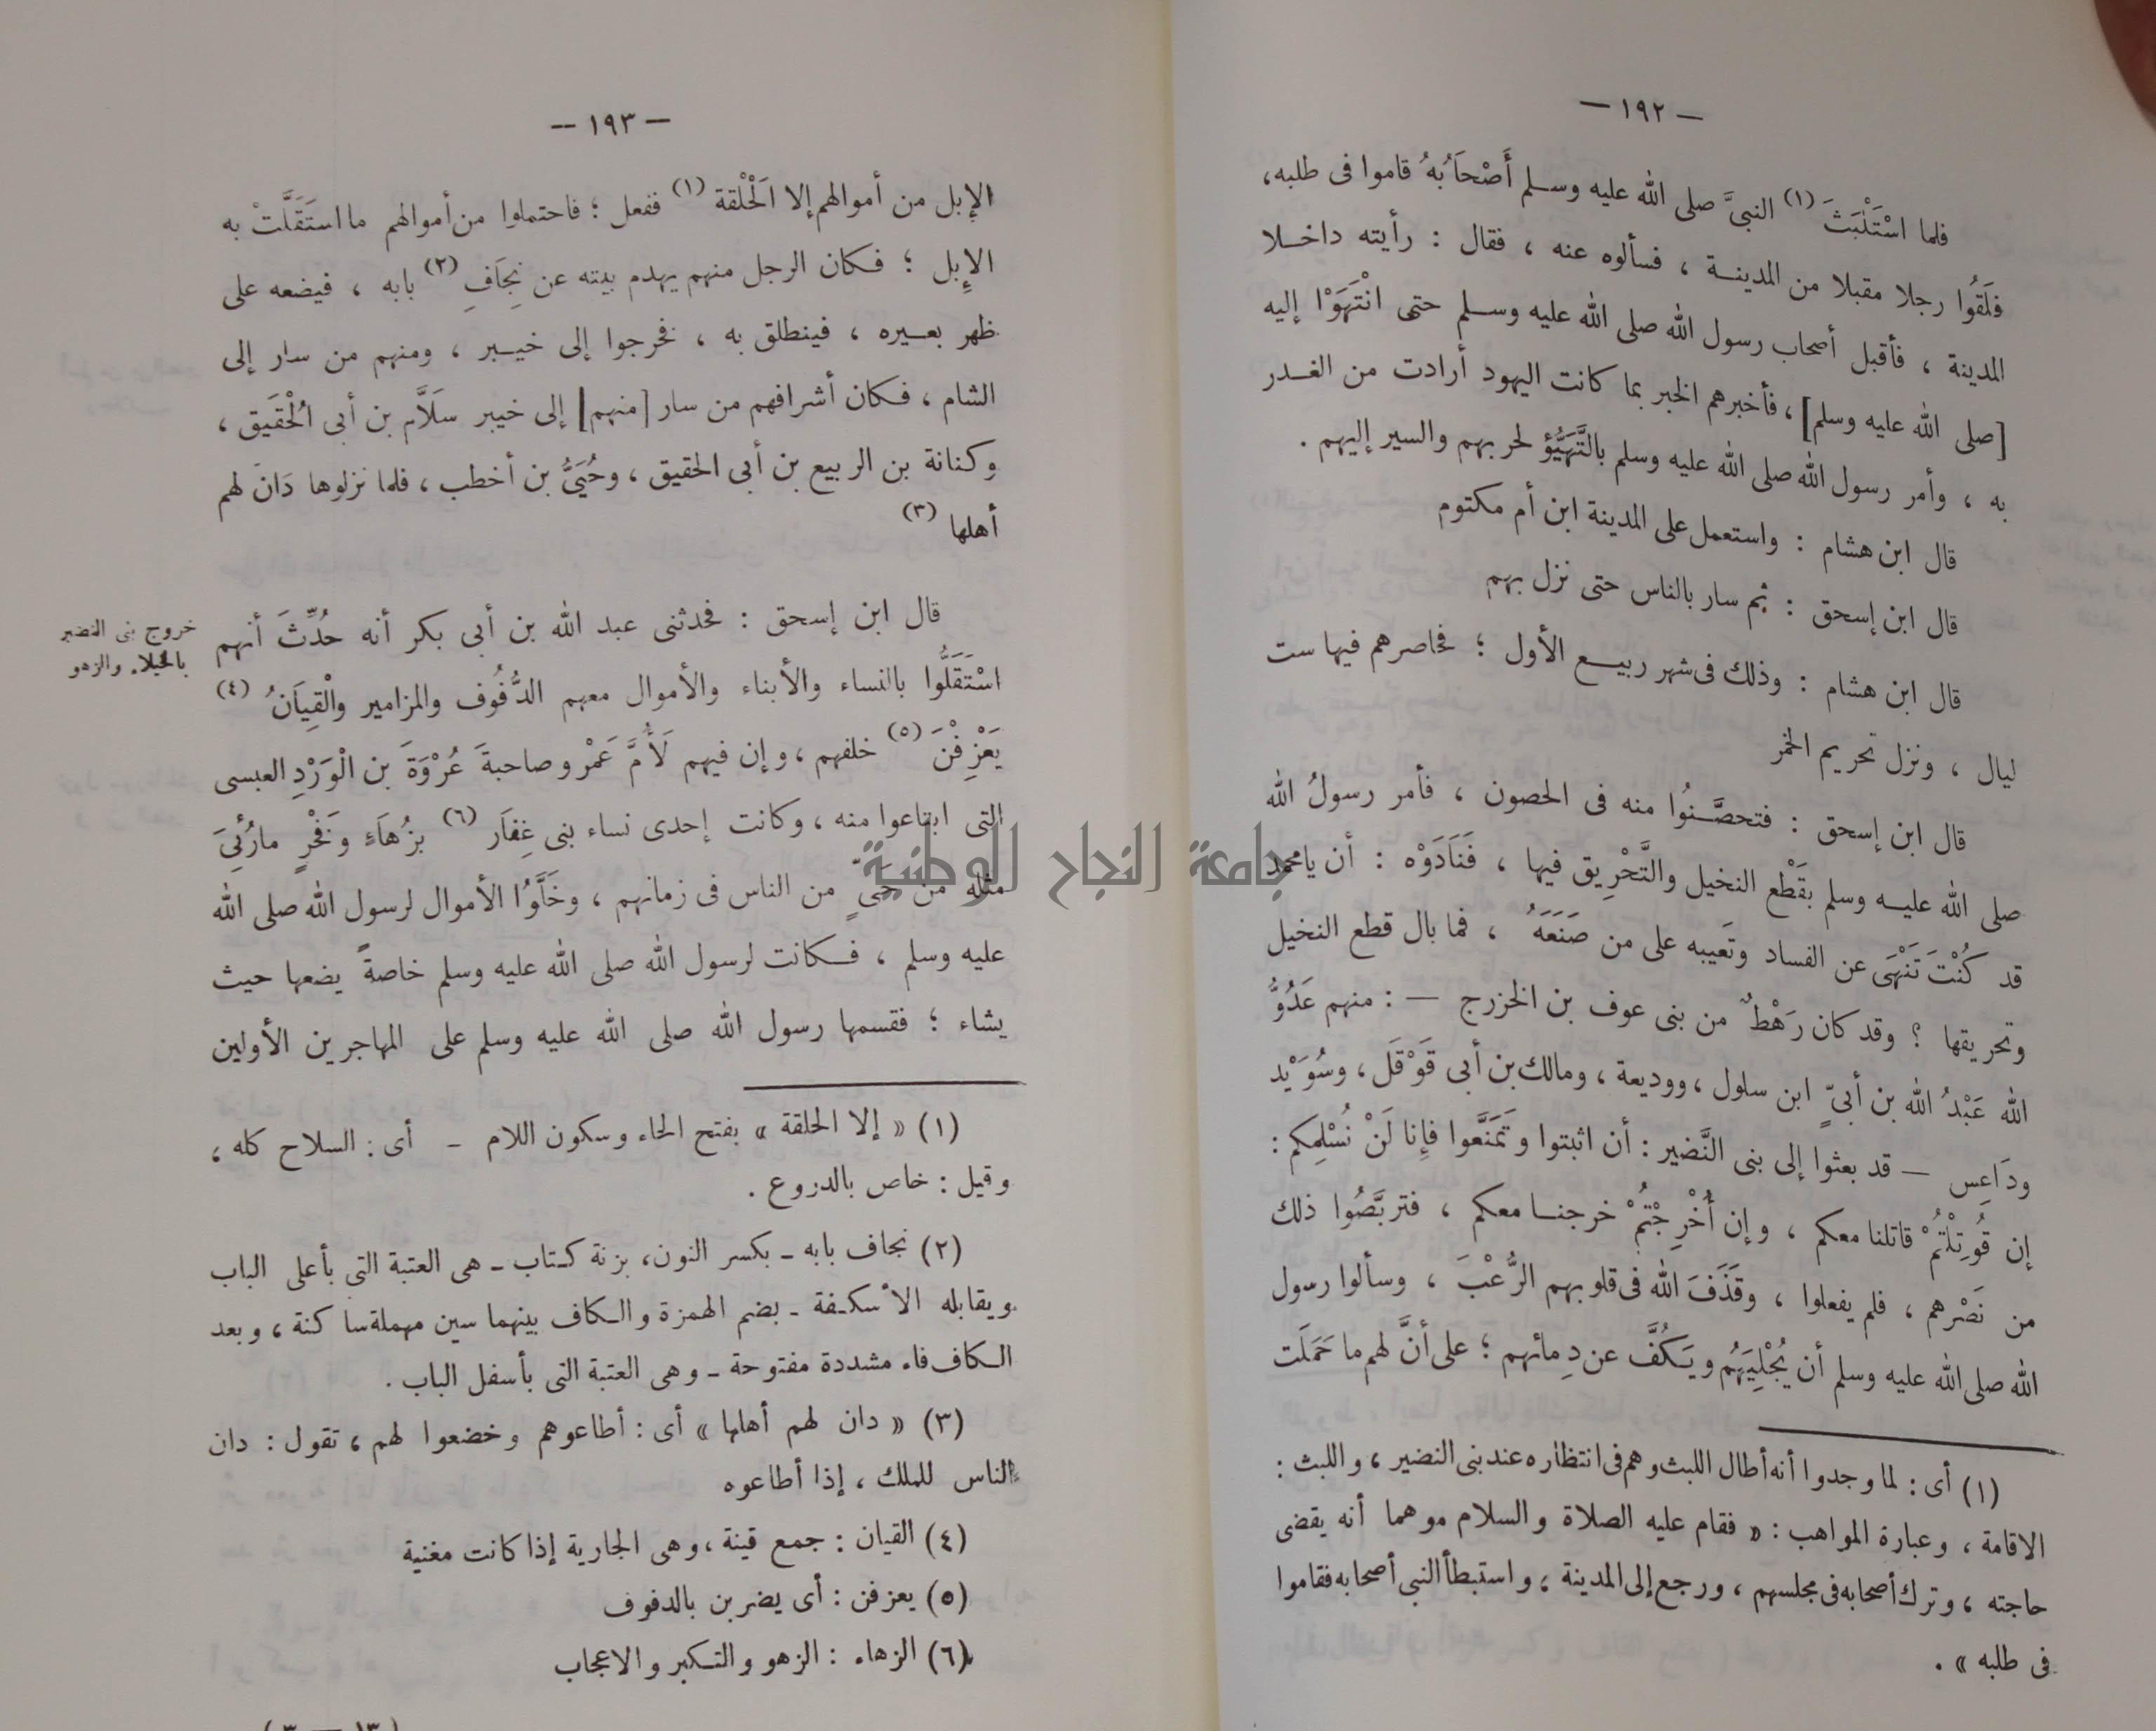 — ١٩٢ —
فلما اسْتَلْبَثَ (١) النبيَّ صلى الله عليه وسلم أَصْحَابُهُ قاموا فى طلبه،
فلَقُوا رجلا مقبلا من المدينة ، فسألوه عنه ، فقال : رأيته داخلا
المدينة ، فأقبل أصحاب رسول الله صلى الله عليه وسلم حتى انْتَهَوْا إليه
[صلى الله عليه وسلم] ، فأخبرهم الخبر بما كانت اليهود أرادت من الغدر
به ، وأمر رسول الله صلى الله عليه وسلم بالتَّهَيُّؤ لحربهم والسير إليهم .
قال ابن هشام : واستعمل على المدينة ابن أم مكتوم
قال ابن إسحق : ثم سار بالناس حتى نزل بهم
قال ابن هشام : وذلك فى شهر ربيع الأول ؛ فحاصرهم فيها ست
ليال ، ونزل تحريم الخمر
قال ابن إسحق : فتحصَّنُوا منه فى الحصون ، فأمر رسولُ الله
صلى الله عليه وسلم بقَطْع النخيل والتَّحْرِيق فيها ، فَنَادَوْه : أن يامحمد
قد كُنْتَ تَنْهَى عن الفساد وتَعيبه على من صَنَعَهُ ، فما بال قطع النخيل
وتحريقها ؟ وقد كان رَهْطٌ من بنى عوف بن الخزرج — : منهم عَدُوُّ
الله عَبْدُ الله بن أبيٍّ ابن سلول ، ووديعة ، ومالك بن أبى قَوْقَل ، وسُوَيْد
ودَاعِس — قد بعثوا إلى بنى النَّضير : أن اثبتوا وتَمَنَّعوا فإنا لَنْ نُسْلِمكم :
إن قُوتِلْتُمْ قاتلنا معكم ، وإن أُخْرِجْتُمْ خرجنا معكم ، فتربَّصُوا ذلك
من نَصْرهم ، فلم يفعلوا ، وقَذَفَ الله فى قلوبهم الرُّعْبَ ، وسألوا رسول
الله صلى الله عليه وسلم أن يُجْلِيَهُم ويَكُفَّ عن دِمائهم ؛ على أنَّ لهم ما حَمَلَت
(١) أى : لما وجدوا أنه أطال اللبث وهم فى انتظاره عند بنى النضير ، واللبث :
الاقامة ، وعبارة المواهب : « فقام عليه الصلاة والسلام موهما أنه يقضى
حاجته ، وترك أصحابه فى مجلسهم ، ورجع إلى المدينة ، واستبطأ النبى أصحابه فقاموا
فى طلبه » .
— ١٩٣ —
الإبل من أموالهم إلا الْحَلْقة (١) ففعل ؛ فاحتملوا من أموالهم ما استَقَلَّتْ به
الإبل ؛ فكان الرجل منهم يهدم بيته عن نِجَافِ (٢) بابه ، فيضعه على
ظهر بعيره ، فينطلق به ، فخرجوا إلى خيبر ، ومنهم من سار إلى
الشام ، فكان أشرافهم من سار [منهم] إلى خيبر سَلاَّم بن أبى الْحُقَيق ،
وكنانة بن الربيع بن أبى الحقيق ، وحُيَىُّ بن أخطب ، فلما نزلوها دَانَ لهم
أهلها (٣)
قال ابن إسحق : فحدثنى عبد الله بن أبى بكر أنه حُدِّثَ أنهم
اسْتَقَلُّوا بالنساء والأبناء والأموال معهم الدُّفُوف والمزامير والْقِيَانُ (٤)
يَعْزِفْنَ (٥) خلفهم ، وإن فيهم لَأُمَّ عَمْرو صاحبةَ عُرْوَةَ بن الْوَرْدِ العبسى
التى ابتاعوا منه ، وكانت إحدى نساء بنى غِفَار (٦) بزُهَاءٍ وَفَخْرٍ مارُئِىَ
مثله من حَىٍّ من الناس فى زمانهم ، وخَلَّوُا الأموال لرسول الله صلى الله
عليه وسلم ، فكانت لرسول الله صلى الله عليه وسلم خاصةً يضعها حيث
يشاء ؛ فقسمها رسول الله صلى الله عليه وسلم على المهاجرين الأولين
خروج بنى النضير
بالخيلاء والزهو
(١) « إلا الحلقة » بفتح الحاء وسكون اللام - أى : السلاح كله ،
وقيل : خاص بالدروع .
(٢) نجاف بابه - بكسر النون، بزنة كتاب - هى العتبة التى بأعلى الباب
ويقابله الأسكفة - بضم الهمزة والكاف بينهما سين مهملة ساكنة ، وبعد
الكاف فاء مشددة مفتوحة - وهى العتبة التى بأسفل الباب .
(٣) « دان لهم أهلها » أى : أطاعوهم وخضعوا لهم ، تقول : دان
الناس للملك ، إذا أطاعوه
(٤) القيان : جمع قينة ، وهى الجارية إذا كانت مغنية
(٥) يعزفن : أى يضربن بالدفوف
(٦) الزهاء : الزهو والتكبر والاعجاب
جامعة النجاح الوطنية